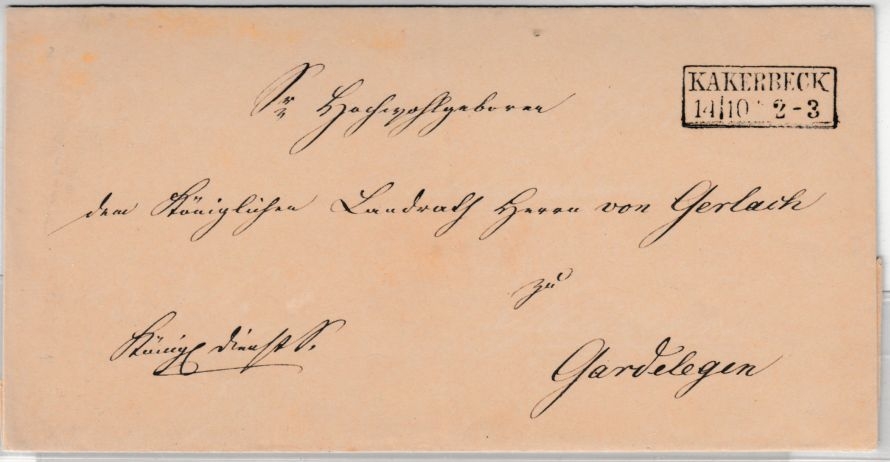 KAKERBECK
14|10 * 2-3
Sr Hochwohlgeboren
dem Königlichen Landrath Herrn von Gerlach
zu
Königl dienst S.
Gardelegen